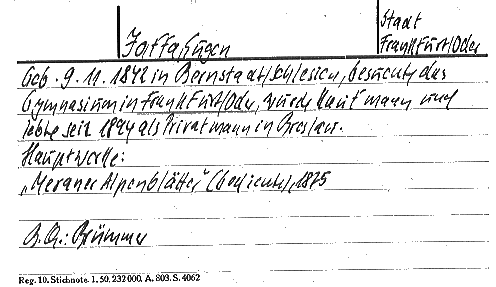 Stadt
Jaffa, Eugen Frankfurt/Oder
Geb. 9. 11. 1842 in Bernstadt/Schlesien, besuchte das
Gymnasium in Frankfurt/Oder, wurde Kaufmann und
lebte seit 1894 als Privatmann in Breslau.
Hauptwerke:
„Meraner Alpenblätter" (Gedichte), 1875
B. Q.: Brümmer
Reg. 10. Stichnote. 1. 50. 232000. A. 803. S. 4062